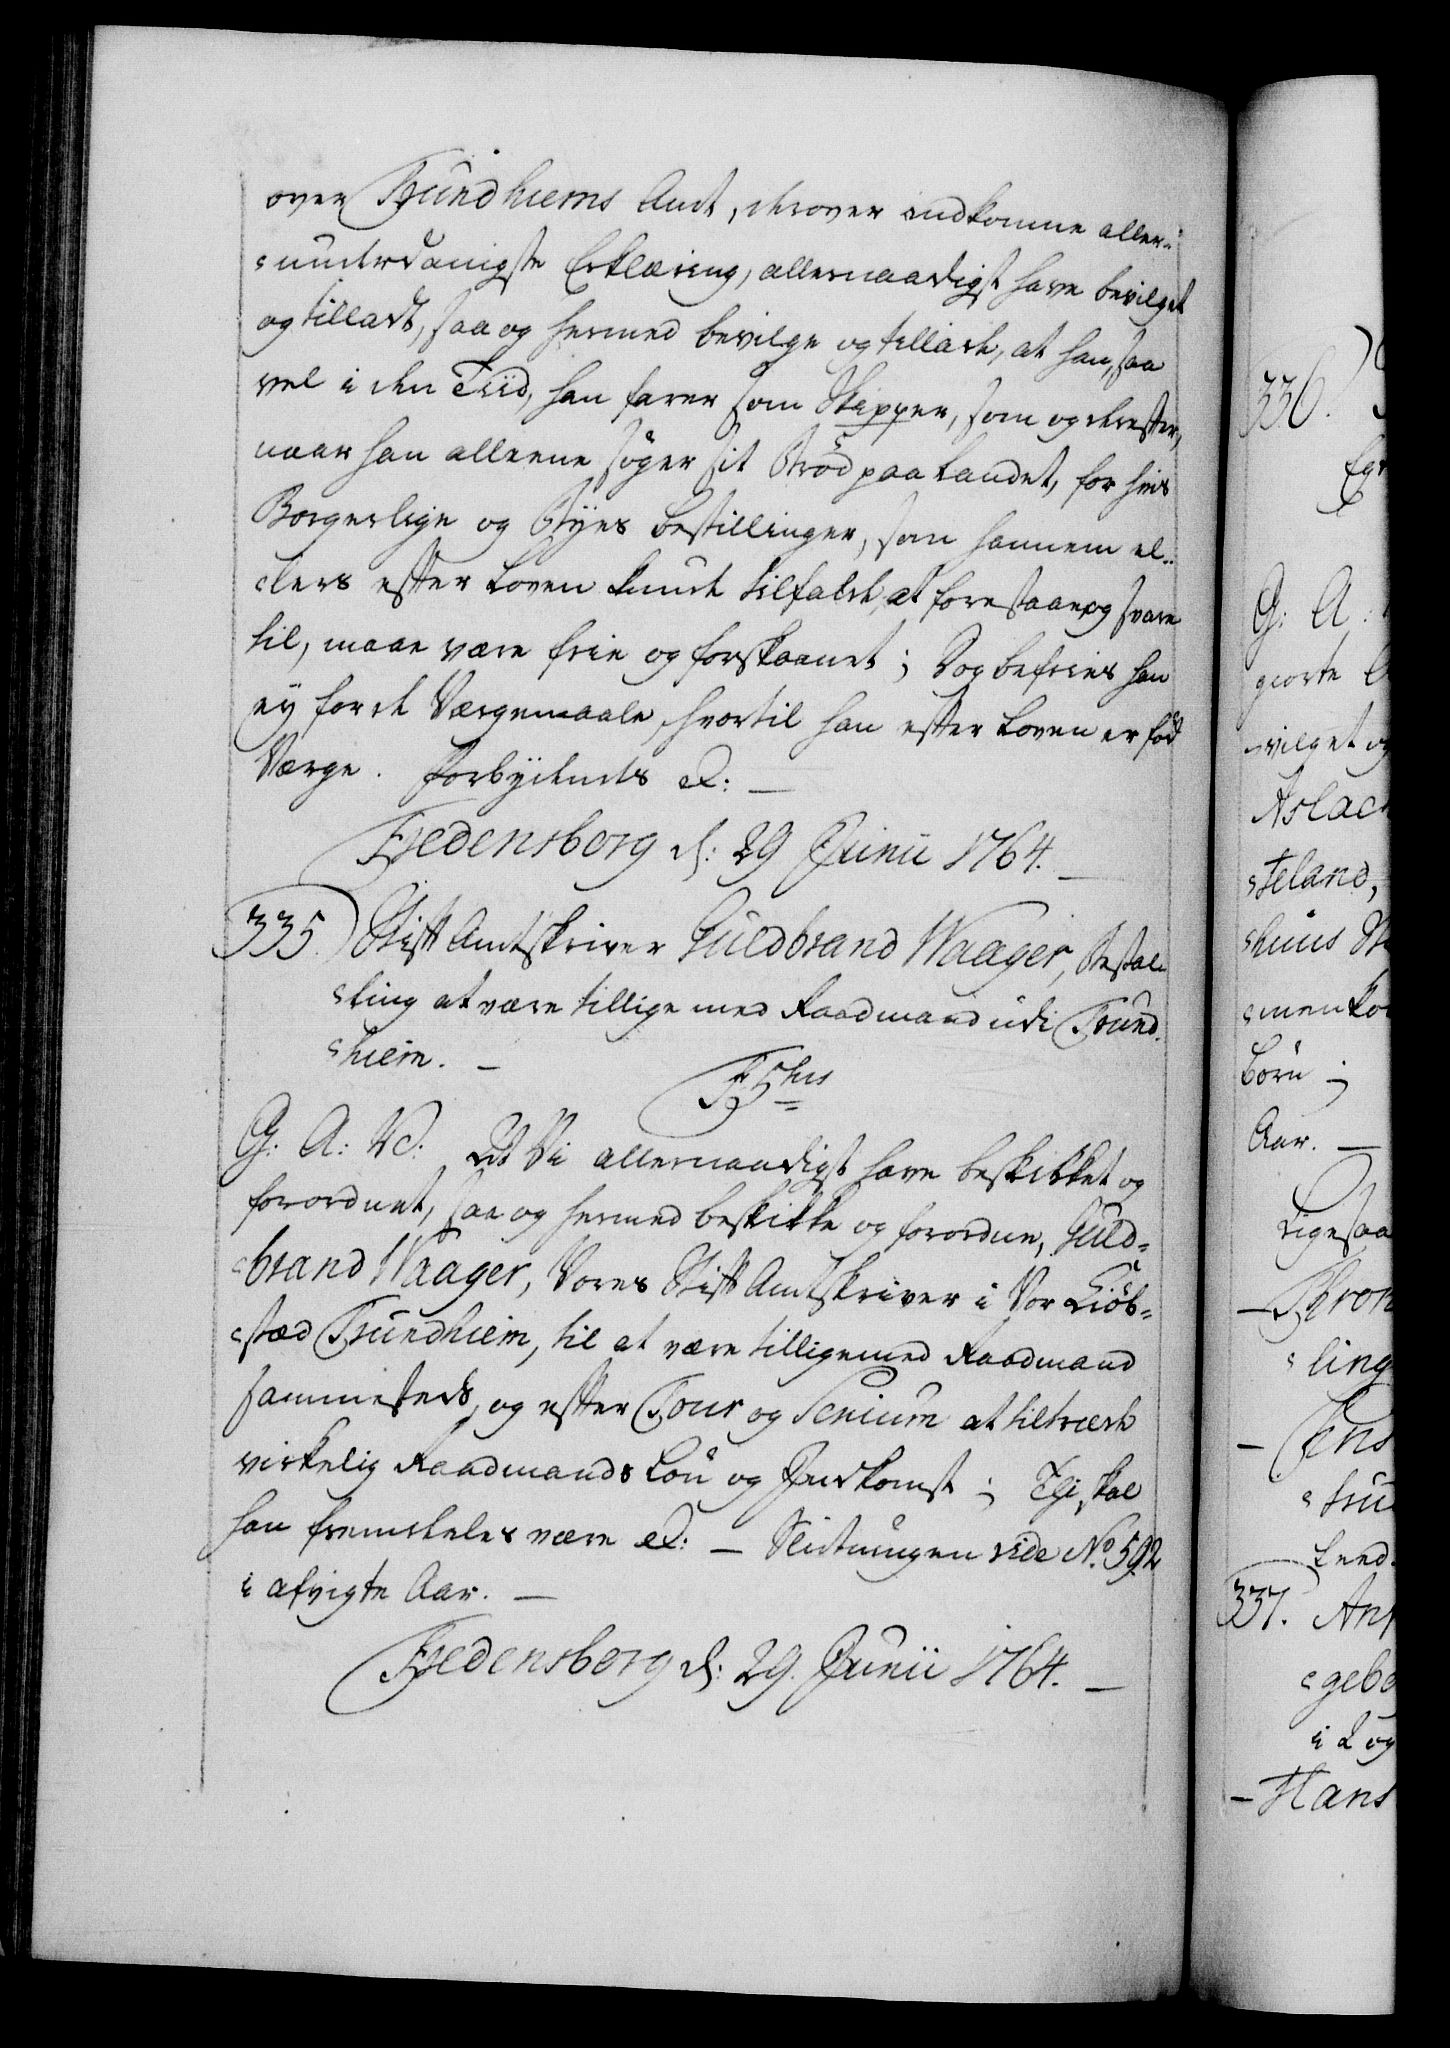 over Trundhiems Amt, derover indkomne aller-
underdanigste Erklæring, allernaadigst have bevilget
og tilladt, saa og hermed bevilge og tillade, at han, saa
vel i den Tiid, han farer som Skipper, som og derefter,
naar han alleene søger sit Brød paa Landet, for hvis
Borgerlige og Byes bestillinger, som hannem el-
lers efter Loven kunde tilfalde, at forestaae og svare
til, maae være frie og forskaanet; Dog befries han
ey for de Værgemaale, hvortil han efter Loven er fød
Værge. Forbydendes &:
Fredensborg d: 29 Junii 1764.
335. Stift Amtskriver Guldbrand Waager, Bestal-
ling at være tillige med Raadmand udi Trund-
hiem.
F 5tus
G: A: V: At Vi allernaadigst have beskikket og
forordnet, saa og hermed beskikke og forordne, Guld-
brand Waager, Vores Stift Amtskriver i Vor Kiøb-
stæd Trundhiem, til at være tilligemed Raadmand
sammesteds, og efter Tour og Senium at tiltræde
virkelig Raadmands Løn og Indkomst; Thi skal
han fremdeles være &: Slutningen vide No. 592
i afvigte Aar.
Fredensborg d: 29. Junii 1764.
336.
G: A:
giorte
vilget og
Aslach
steland,
huus
menko
Børn;
Aar.
Ligesaa
Thron
ling
Jens
tru
Lend
337. An
gebo
i Log
Hans